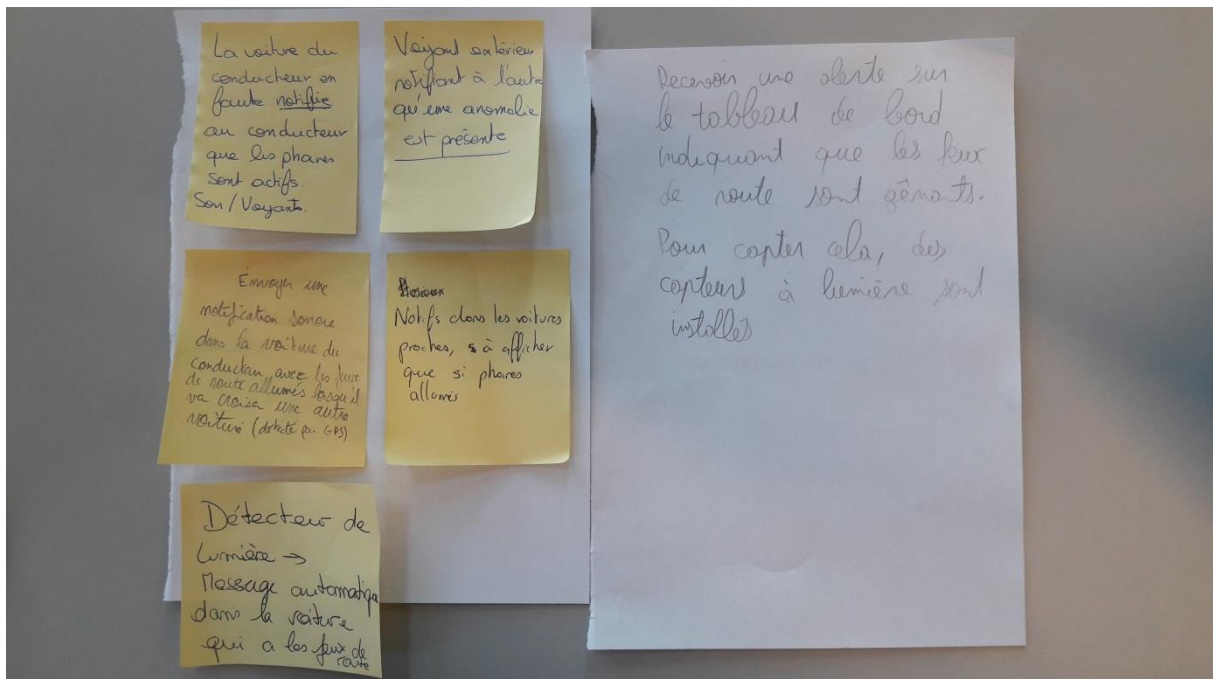 La voiture du
conducteur en
faute notifie
au conducteur
que les phares
sont actifs.
Son / Voyants.
Voyant extérieur
notifiant à l'autre
qu'une anomalie
est présente
Envoyer une
notification sonore
dans la voiture du
conducteur avec les feux
de route allumés lorsqu'il
va croiser une autre
voiture (détecté par GPS)
Notifs dans les voitures
proches, à afficher
que si phares
allumés
Détecteur de
Lumière →
Message automatique
dans la voiture
qui a les feux de
route
Recevoir une alerte sur
le tableau de bord
indiquant que les feux
de route sont gênants.
Pour capter cela, des
capteurs à lumière sont
installés